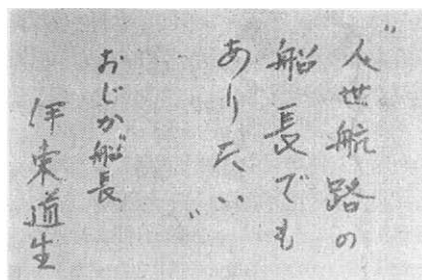 "人世航路の
船長でも
ありたい"
おじか船長
伊東道生